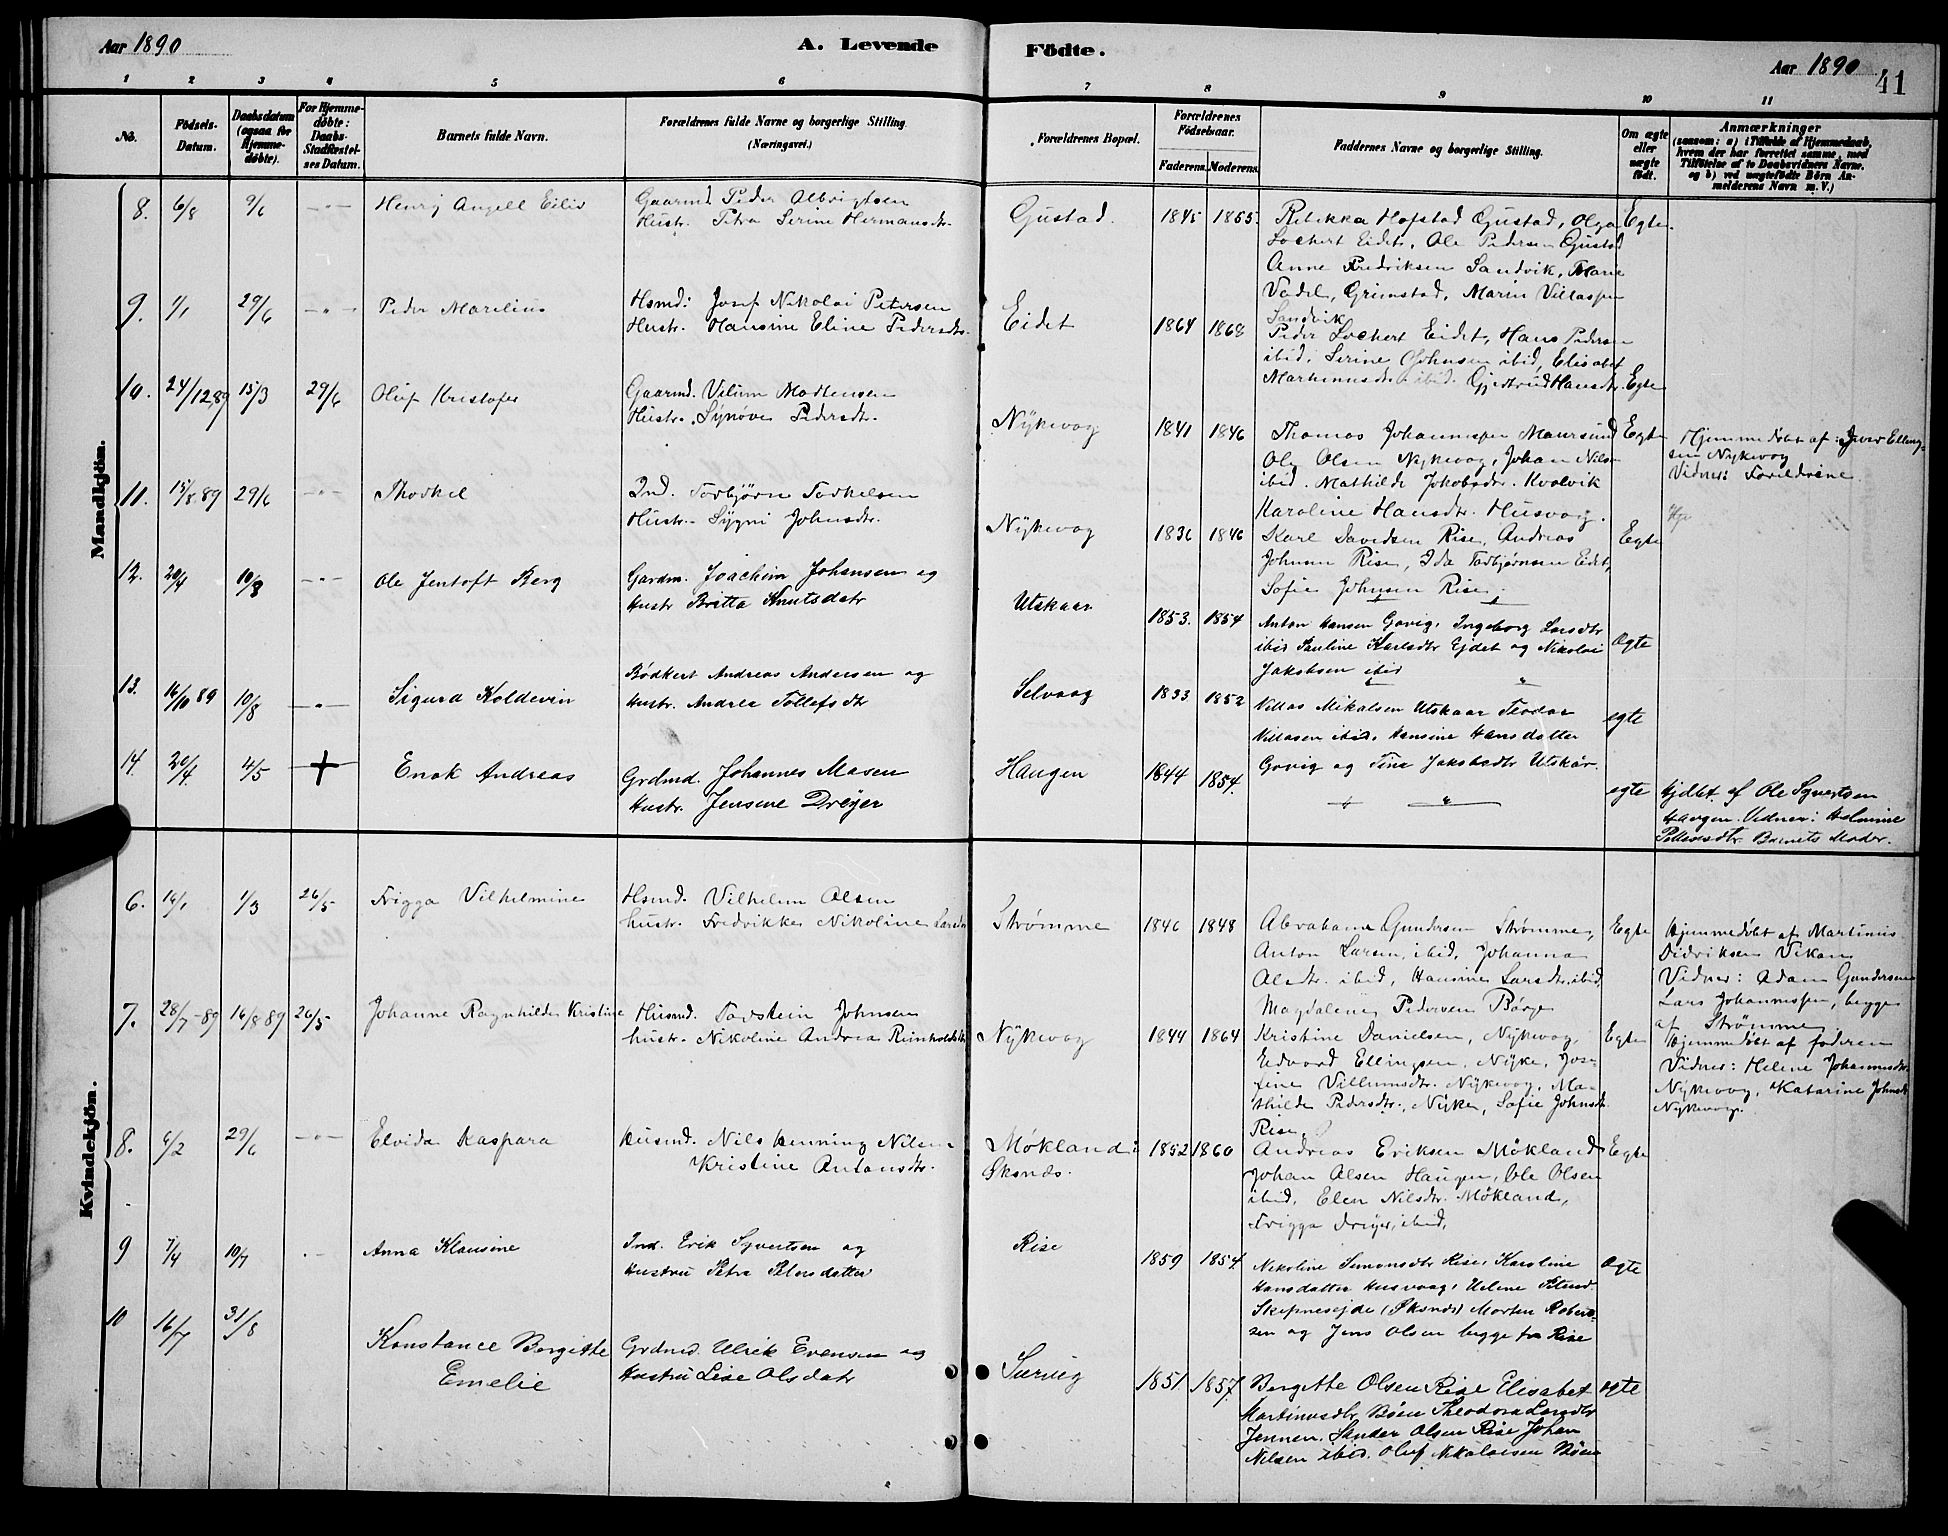 Aar 1890
A. Levende Födte.
Aar 1890
41
1 2 3 4 5 6 7 8 9 10 11
No.
Födsels-Datum.
Daabsdatum (ogsaa for Hjemme-døbte).
For Hjemme-døbte: Daabs-Stadfæstel-ses Datum.
Barnets fulde Navn.
Forældrenes fulde Navne og borgerlige Stilling. (Næringsvei.)
Forældrenes Bopæl.
Forældrenes Födselsaar.
Faderens. Moderens.
Faddernes Navne og borgerlige Stilling.
Om ægte eller uægte født.
Anmærkninger
(saasom: a) i Tilfælde af Hjemmedaab, hvem der har forrettet samme, med Tilføielse af to Daabsvidners Navne, og b) ved uægtefødte Börn An-melderens Navn m. V.)
Mandkjön.
8. 6/8 9/6 -"- Henrij Angell Eilif
Gaarmd. Peder Albrigtsen
Hustr. Petra Serine Hermansdtr.
Gustad. 1845 1855.
Rebekka Hofstad Gustad, Olga
Lochert Eidet, Ole Pedersen Gustad
Anne Fredriksen Sandvik, Marie
Grimstad, Marie Villassen
Sandvik
Egte.
9. 1/1 29/6 -"- Peder Marelius
Hsmd: Josef Nikolai Petersen
Hustr. Hansine Eline Pedersdtr.
Eidet 1864 1868
Peder Lochert Eidet, Hans Pedersen
ibid, Serine Johnsen ibid, Elisabet
Martinusdtr ibid. Gjertrud Hansdtr.
Egte
10. 24/12 89 15/3 29/6 Oluf Kristofer
Gaarmd. Vilum Madtensen
Hustr. Synøve Pedersdtr.
Nykvaag 1841 1846
Thomas Johannessen Maursund
Ole Olsen Nykvaag, Johan Nilsen
ibid. Mathilde Jakobsdtr. Kvalvik
Karoline Hansdtr. Husvaag.
Egte
Hjemmedøbt af: Iver Elling-
sen Nykvaag
Vidner: Forældrene
11. 15/8 89 29/6 -"- Thorkel
Ind. Torbjørn Torkelsen
Hustr. Sygni Johnsdtr.
Nykvaag 1836 1846
Karl Davidsen Rise, Andreas
Johnsen Rise, Ida Torbjørnsen Eidet,
Sofie Johnsen Rise.
Egte
12. 20/4 10/8 -"- Ole Jentoft Berg
Gardm. Joachim Johansen og
Hustr Britta Knutsdatr
Utskaar 1853. 1854
Anton Hansen Govig, Ingeborg Larsdtr
ibid Pauline Karlsdtr Ejdet og Nikolai
Jakobsen ibid
Ægte
13. 16/10 89 10/8 -"- Sigurd Koldevin
Bødkert Andreas Andersen og
Hustr. Andrea Tollefsdtr
Selvaag 1833 1852
Villas Mikalsen Utskaar Teodor
Villasen ibid, Hansine Hansdatter
Govig og Tina Jakobsdtr Utskår.
egte
14. 20/4. 4/5 + Enok Andreas
Grdmd. Johannes Masen
Hustr. Jensine Dreyer
Haugen 1844 1854.
egte
Hjdbt. af Ole Syvertsen
Haugen. Vidner: Halmine
Barnets Moder.
Kvindekjön.
6. 14/1 1/3 26/5 Frigga Vilhelmine
Hsmd. Vilhelm Olsen
hustr. Fredrikke Nikoline Larsdtr
Strømme 1846 1848
Abraham Gundersen Strømme,
Anton Larsen, ibid, Johanna
Olsdtr. ibid, Hansine Larsdtr. ibid,
Magdalene Pedersen Børge
Egte
Hjemmedøbt af Martinus
Didriksen Vikan
Vidner: Adam Gundersen
Lars Johannessen, begge
af Strømme
7. 28/7-89 16/8 89 26/5 Johanne Ragnhilde Kristine
Husmd. Torstein Johnsen
hustr. Nikoline Andrea Reinholdsdtr
Nykvaag 1844 1864
Kristine Danielsen, Nykvaag,
Edvard Ellingsen, Nyke, Jos-
fine Villumsdtr. Nykvaag, Ma-
thilde Pedersdtr., Nyke, Sofie Johnsdtr.
Rise
Egte
Hjemmedøbt af faderen
Vidner: Helene Johannesdtr.
Nykvaag, Katarine Johnsdtr
Nykvaag.
8. 6/2 29/6 -"- Elvida Kaspara
Husmd. Nils Henning Nilsen
Kristine Antonsdtr.
Møkland i
Øksnæs.
1852 1860
Andreas Eriksen Møkland
Johan Olsen Haugen, Ole Olsen
ibid, Elen Nilsdtr. Møkland,
Frigga Dreyer, ibid,
Egte
9 7/4 10/7 Anna Klausine
Ind. Erik Syvertsen og
Hustru Petra Petersdatter
Rise 1859 1854.
Nikoline Simonsdtr Rise, Karoline
Hansdatter Husvaag, Helene
Skipnesejde (Øksnæs) Morten Robert-
sen og Jens Olsen begge fra Rise
Ægte
10 16/7 31/8 Konstance Borgitte
Emelie
Grdmd. Ulrik Evensen og
Hustru Lise Olsdatr
Sørvig 1851 1857.
Bergitte Olsen Rise Elisabet
Martinusdtr Bøen Theodora Larsdtr
Jennen. Sander Olsen Rise Johan
Nilsen ibid. Oluf Nikolaisen Bøen
egte